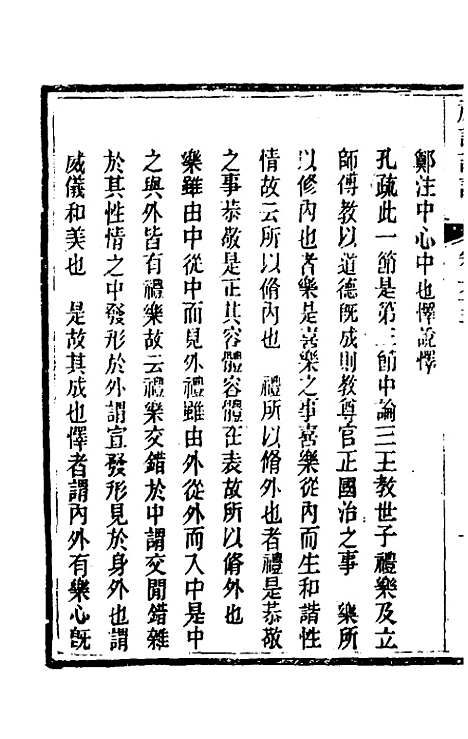 鄭注中心中也懌說懌
孔疏此一節是第三節中論三王教世子禮樂及立
師傅教以道德旣成則教尊官正國治之事　樂所
以修內也者樂是喜樂之事喜樂從內而生和諧性
情故云所以脩內也　禮所以脩外也者禮是恭敬
之事恭敬是正其容體容體在表故所以脩外也
樂雖由中從中而見外禮雖由外從外而入中是中
之與外皆有禮樂故云禮樂交錯於中謂交閒錯雜
於其性情之中發形於外謂宣發形見於身外也謂
威儀和美也　是故其成也懌者謂內外有樂心旣